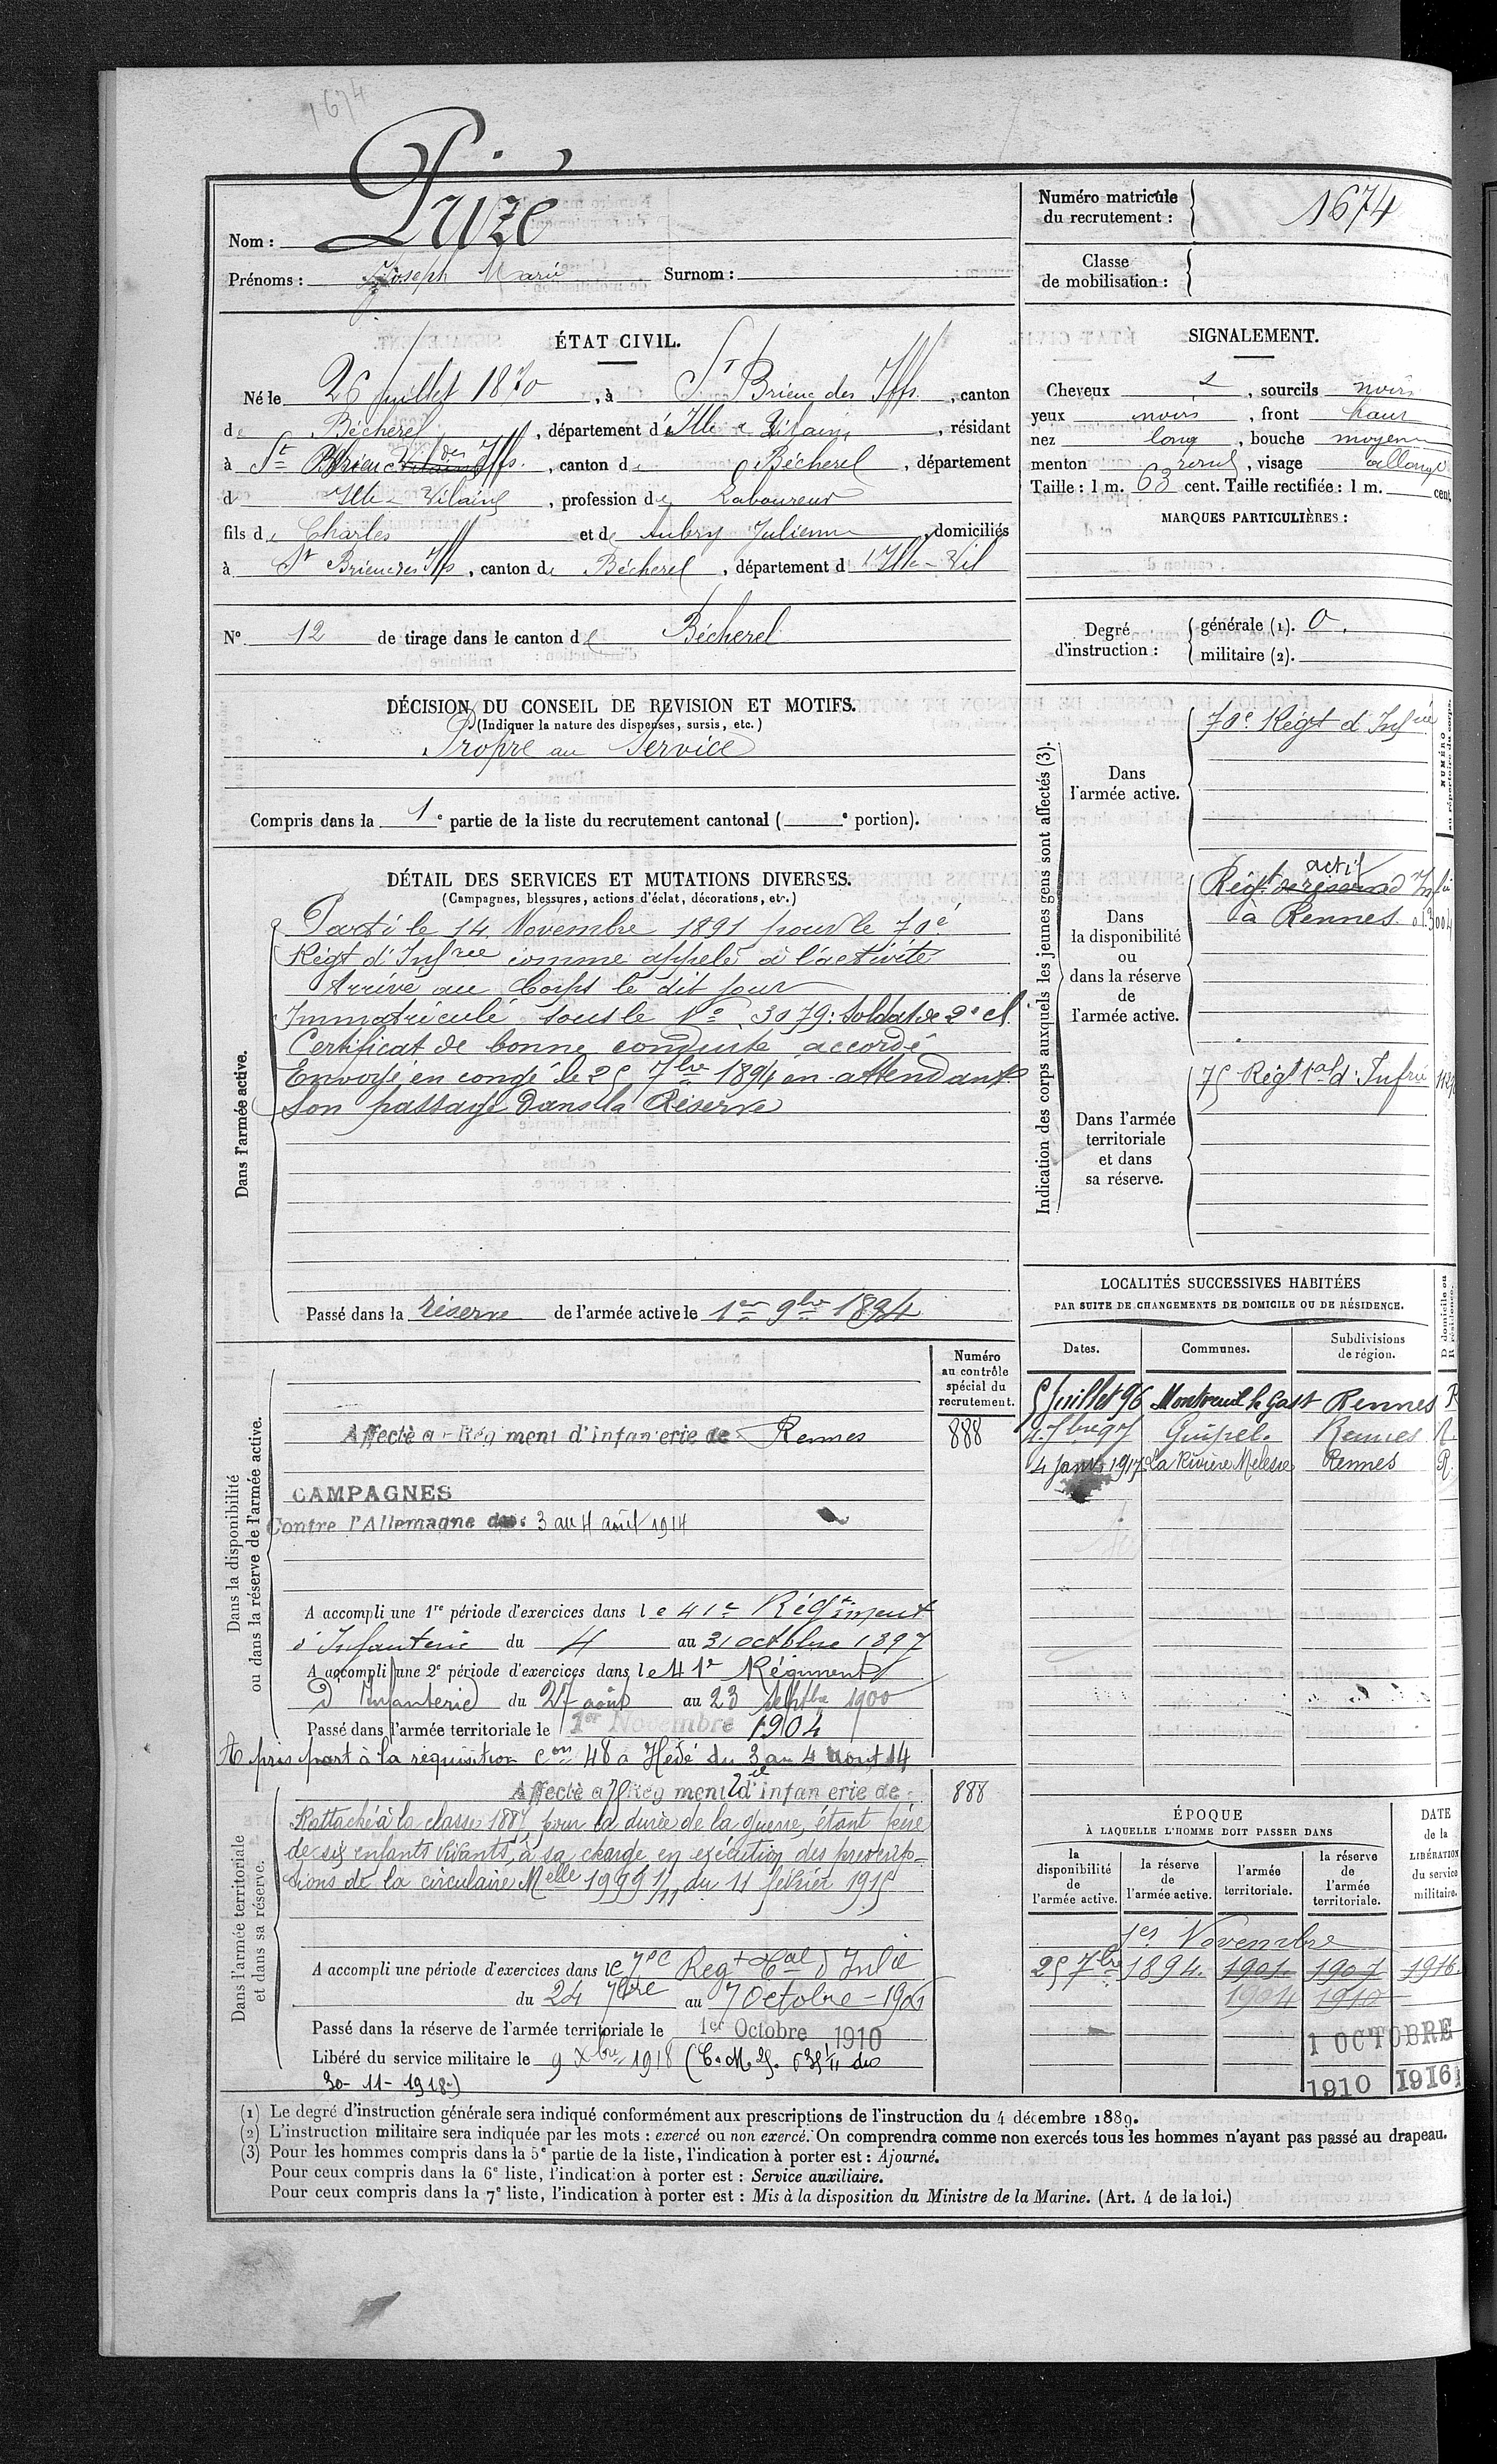 1674
Nom : Puizé
Prénoms : Joseph Marie Surnom :
Numéro matricule du recrutement : 1674
Classe de mobilisation :
ÉTAT CIVIL.
Né le 26 juillet 1870, à St Brieuc des Iffs, canton
de Bécherel, département d'Ille & Vilaine, résidant
à St Brieuc des Iffs, canton de Bécherel, département
d Ille & Vilaine, profession de Laboureur
fils de Charles et de Aubry Julienne, domiciliés
à St Brieuc des Iffs, canton de Bécherel, département d Ille-Vil
N° 12 de tirage dans le canton de Bécherel
SIGNALEMENT.
Cheveux, sourcils noirs
yeux noirs, front haut
nez long, bouche moyenne
menton rond, visage allongé
Taille : 1 m. 63 cent. Taille rectifiée : 1 m. cent.
MARQUES PARTICULIÈRES :
Degré d'instruction :
générale (1). 0.
militaire (2).
DÉCISION DU CONSEIL DE REVISION ET MOTIFS.
(Indiquer la nature des dispenses, sursis, etc.)
Propre au Service
Compris dans la 1e partie de la liste du recrutement cantonal ( e portion).
DÉTAIL DES SERVICES ET MUTATIONS DIVERSES.
(Campagnes, blessures, actions d'éclat, décorations, etc.)
Dans l'armée active.
Parti le 14 Novembre 1891 pour le 70e
Régt d'Infrie comme appelé à l'activité
Arrivé au Corps le dit jour
Immatriculé sous le No 3079. Soldat de 2e cl.
Certificat de bonne conduite accordé
Envoyé en congé le 25 7bre 1894 en attendant
son passage dans la Réserve
Passé dans la réserve de l'armée active le 1er 9bre 1894
Indication des corps auxquels les jeunes gens sont affectés (3).
NUMÉRO au répertoire du corps.
Dans l'armée active.
70e Régt d'Infrie
Dans la disponibilité ou dans la réserve de l'armée active.
actif
Régt de réserve d'Inf
à Rennes
Dans l'armée territoriale et dans sa réserve.
75 Régt tal d'Infrie
LOCALITÉS SUCCESSIVES HABITÉES
PAR SUITE DE CHANGEMENTS DE DOMICILE OU DE RÉSIDENCE.
Dates. Communes. Subdivisions de région. D domicile ou R résidence.
5 Juillet 96 Montreuil le Gast Rennes R
4. 7bre 97 Guipel. Rennes R.
4 janv 1917 La Rivière Melesse Rennes R.
Dans la disponibilité ou dans la réserve de l'armée active.
Numéro au contrôle spécial du recrutement.
Affecté au Régiment d'infanterie de Rennes 888
CAMPAGNES
Contre l'Allemagne du : 3 au 4 août 1914
A accompli une 1re période d'exercices dans le 41e Régiment
d'Infanterie du 4 au 31 octobre 1897
A accompli une 2e période d'exercices dans le 41e Régiment
d'Infanterie du 27 août au 23 septbre 1900
Passé dans l'armée territoriale le 1er Novembre 1904
A pris part à la réquisition con 48 à Hédé du 3 au 4 aout 14
Dans l'armée territoriale et dans sa réserve.
Affecté au Régiment d'infanterie de 888
Rattaché à la classe 1887 pour la durée de la guerre, étant père
de six enfants vivants, à sa charge, en exécution des prescrip-
tions de la circulaire Melle 1999 1/11 du 11 février 1915
A accompli une période d'exercices dans le 75e Regt tal d'Infie
du 24 7bre au 7 Octobre - 1905
Passé dans la réserve de l'armée territoriale le 1er Octobre 1910
Libéré du service militaire le 9 Xbre 1918 (C. M. du
30-11-1918)
ÉPOQUE
À LAQUELLE L'HOMME DOIT PASSER DANS
la disponibilité de l'armée active.
la réserve de l'armée active.
l'armée territoriale.
la réserve de l'armée territoriale.
DATE de la LIBÉRATION du service militaire.
1er Novembre
25 7bre 1894. 1901. 1907 1916.
1904 1910
1 OCTOBRE
1910 1916
(1) Le degré d'instruction générale sera indiqué conformément aux prescriptions de l'instruction du 4 décembre 1889.
(2) L'instruction militaire sera indiquée par les mots : exercé ou non exercé. On comprendra comme non exercés tous les hommes n'ayant pas passé au drapeau.
(3) Pour les hommes compris dans la 5e partie de la liste, l'indication à porter est : Ajourné.
Pour ceux compris dans la 6e liste, l'indication à porter est : Service auxiliaire.
Pour ceux compris dans la 7e liste, l'indication à porter est : Mis à la disposition du Ministre de la Marine. (Art. 4 de la loi.)